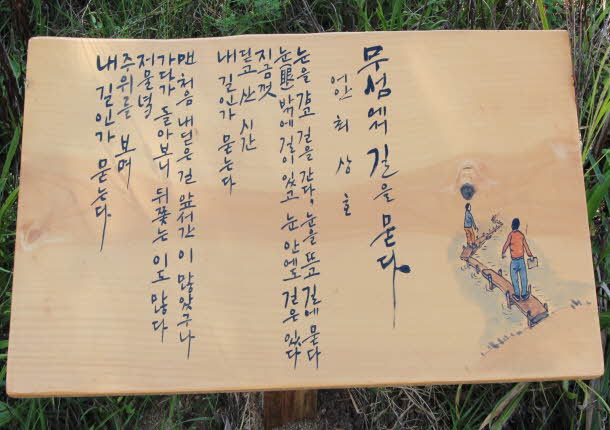 무섬에서 길을 묻다
최 상 호
눈을 감고 걷을 간다, 눈을 뜨고 길에 묻다
눈眼 밖에 길이 있고 눈 안에도 길은 있다
지금껏
딛고 산 시간
내 길인가 묻는다
맨 처음 내딛은 길 앞서간 이 많았구나
가다가 돌아보니 뒤쫓는 이도 많다
저물녘
주위를 보며
내 길인가 묻는다